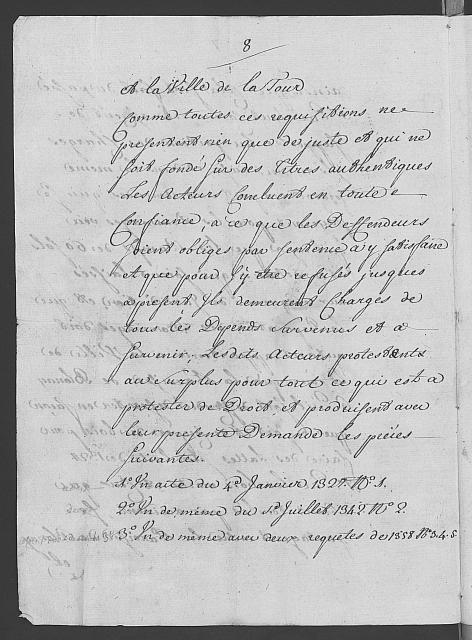 8
A la Ville de la Tour
Comme toutes ces requisitions ne
presentent rien que de juste et qui ne
soit fondé sur des Titres authentiques
Les Acteurs Concluent en toute
Confiance, a ce que les Deffendeurs
soient obliges par sentence a y satisfaire
et que pour s'y etre refusés jusques
a present, ils demeurent Charges de
tous les Depends survenus et a
survenir, Lesdits Acteurs protestants
au surplus pour tout ce qui est a
protester de Droit et produisent avec
leur presente Demande les pièces
suivantes.
1º. Un acte du 4e. Janvier 1327. Nº. 1.
2º. Un de même du Juillet. 1347. Nº. 2.
3º. Un de même avec deux requetes de 1358 Nº 3. 4. 5